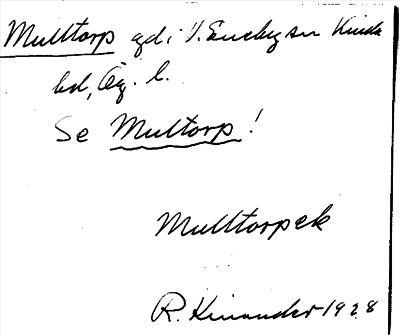 Mulltorp gd i V. Eneby sn Kinda
hd, Ög. l.
Se Multorp!
Mulltorpek
R. Kinander 1928